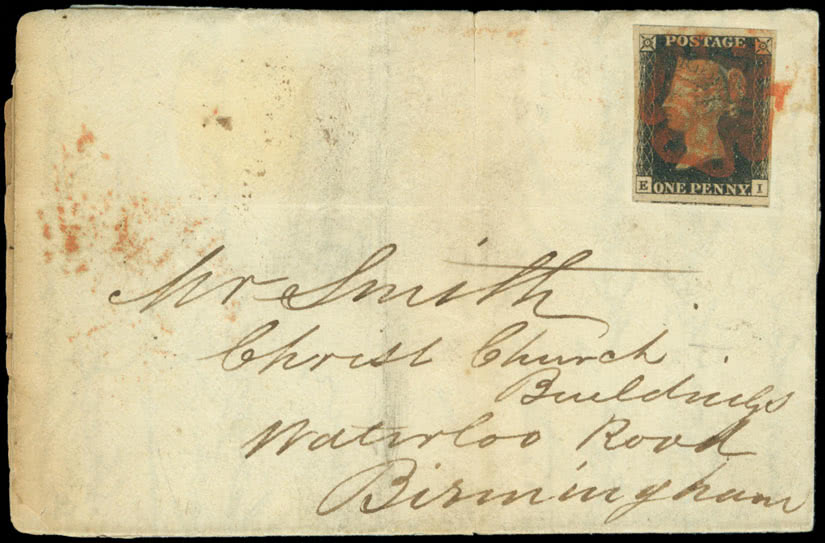 POSTAGE
E ONE PENNY I
Mr Smith
Christ Church
Buildings
Waterloo Road
Birmingham